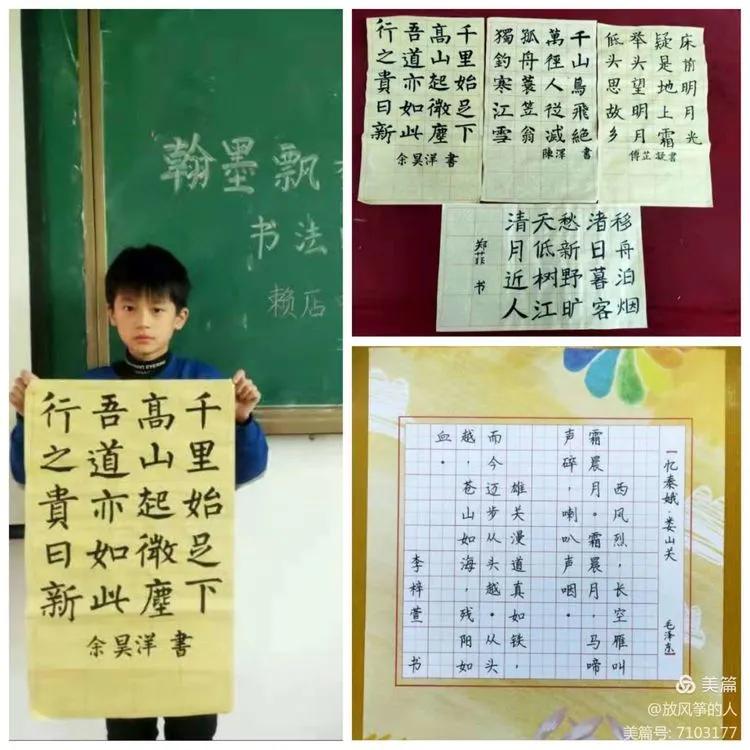 翰墨飘
书法
赖店
千里始足下
高山起微塵
吾道亦如此
行之貴日新
余昊洋 書
千里始足下
高山起微塵
吾道亦如此
行之貴日新
余昊洋 書
千山鳥飛絶
萬徑人從滅
孤舟蓑笠翁
獨釣寒江雪
陳澤 書
床前明月光
疑是地上霜
举头望明月
低头思故乡
傅芷凝書
移舟泊烟
渚日暮客
愁新野旷
天低树江
清月近人
郑菲 书
忆秦娥·娄山关 毛泽东
西风烈，长空雁叫
霜晨月。霜晨月，马啼
声碎，喇叭声咽。
雄关漫道真如铁，
而今迈步从头越。从头
越，苍山如海，残阳如
血。
李梓萱 书
美篇
@放风筝的人
美篇号: 7103177